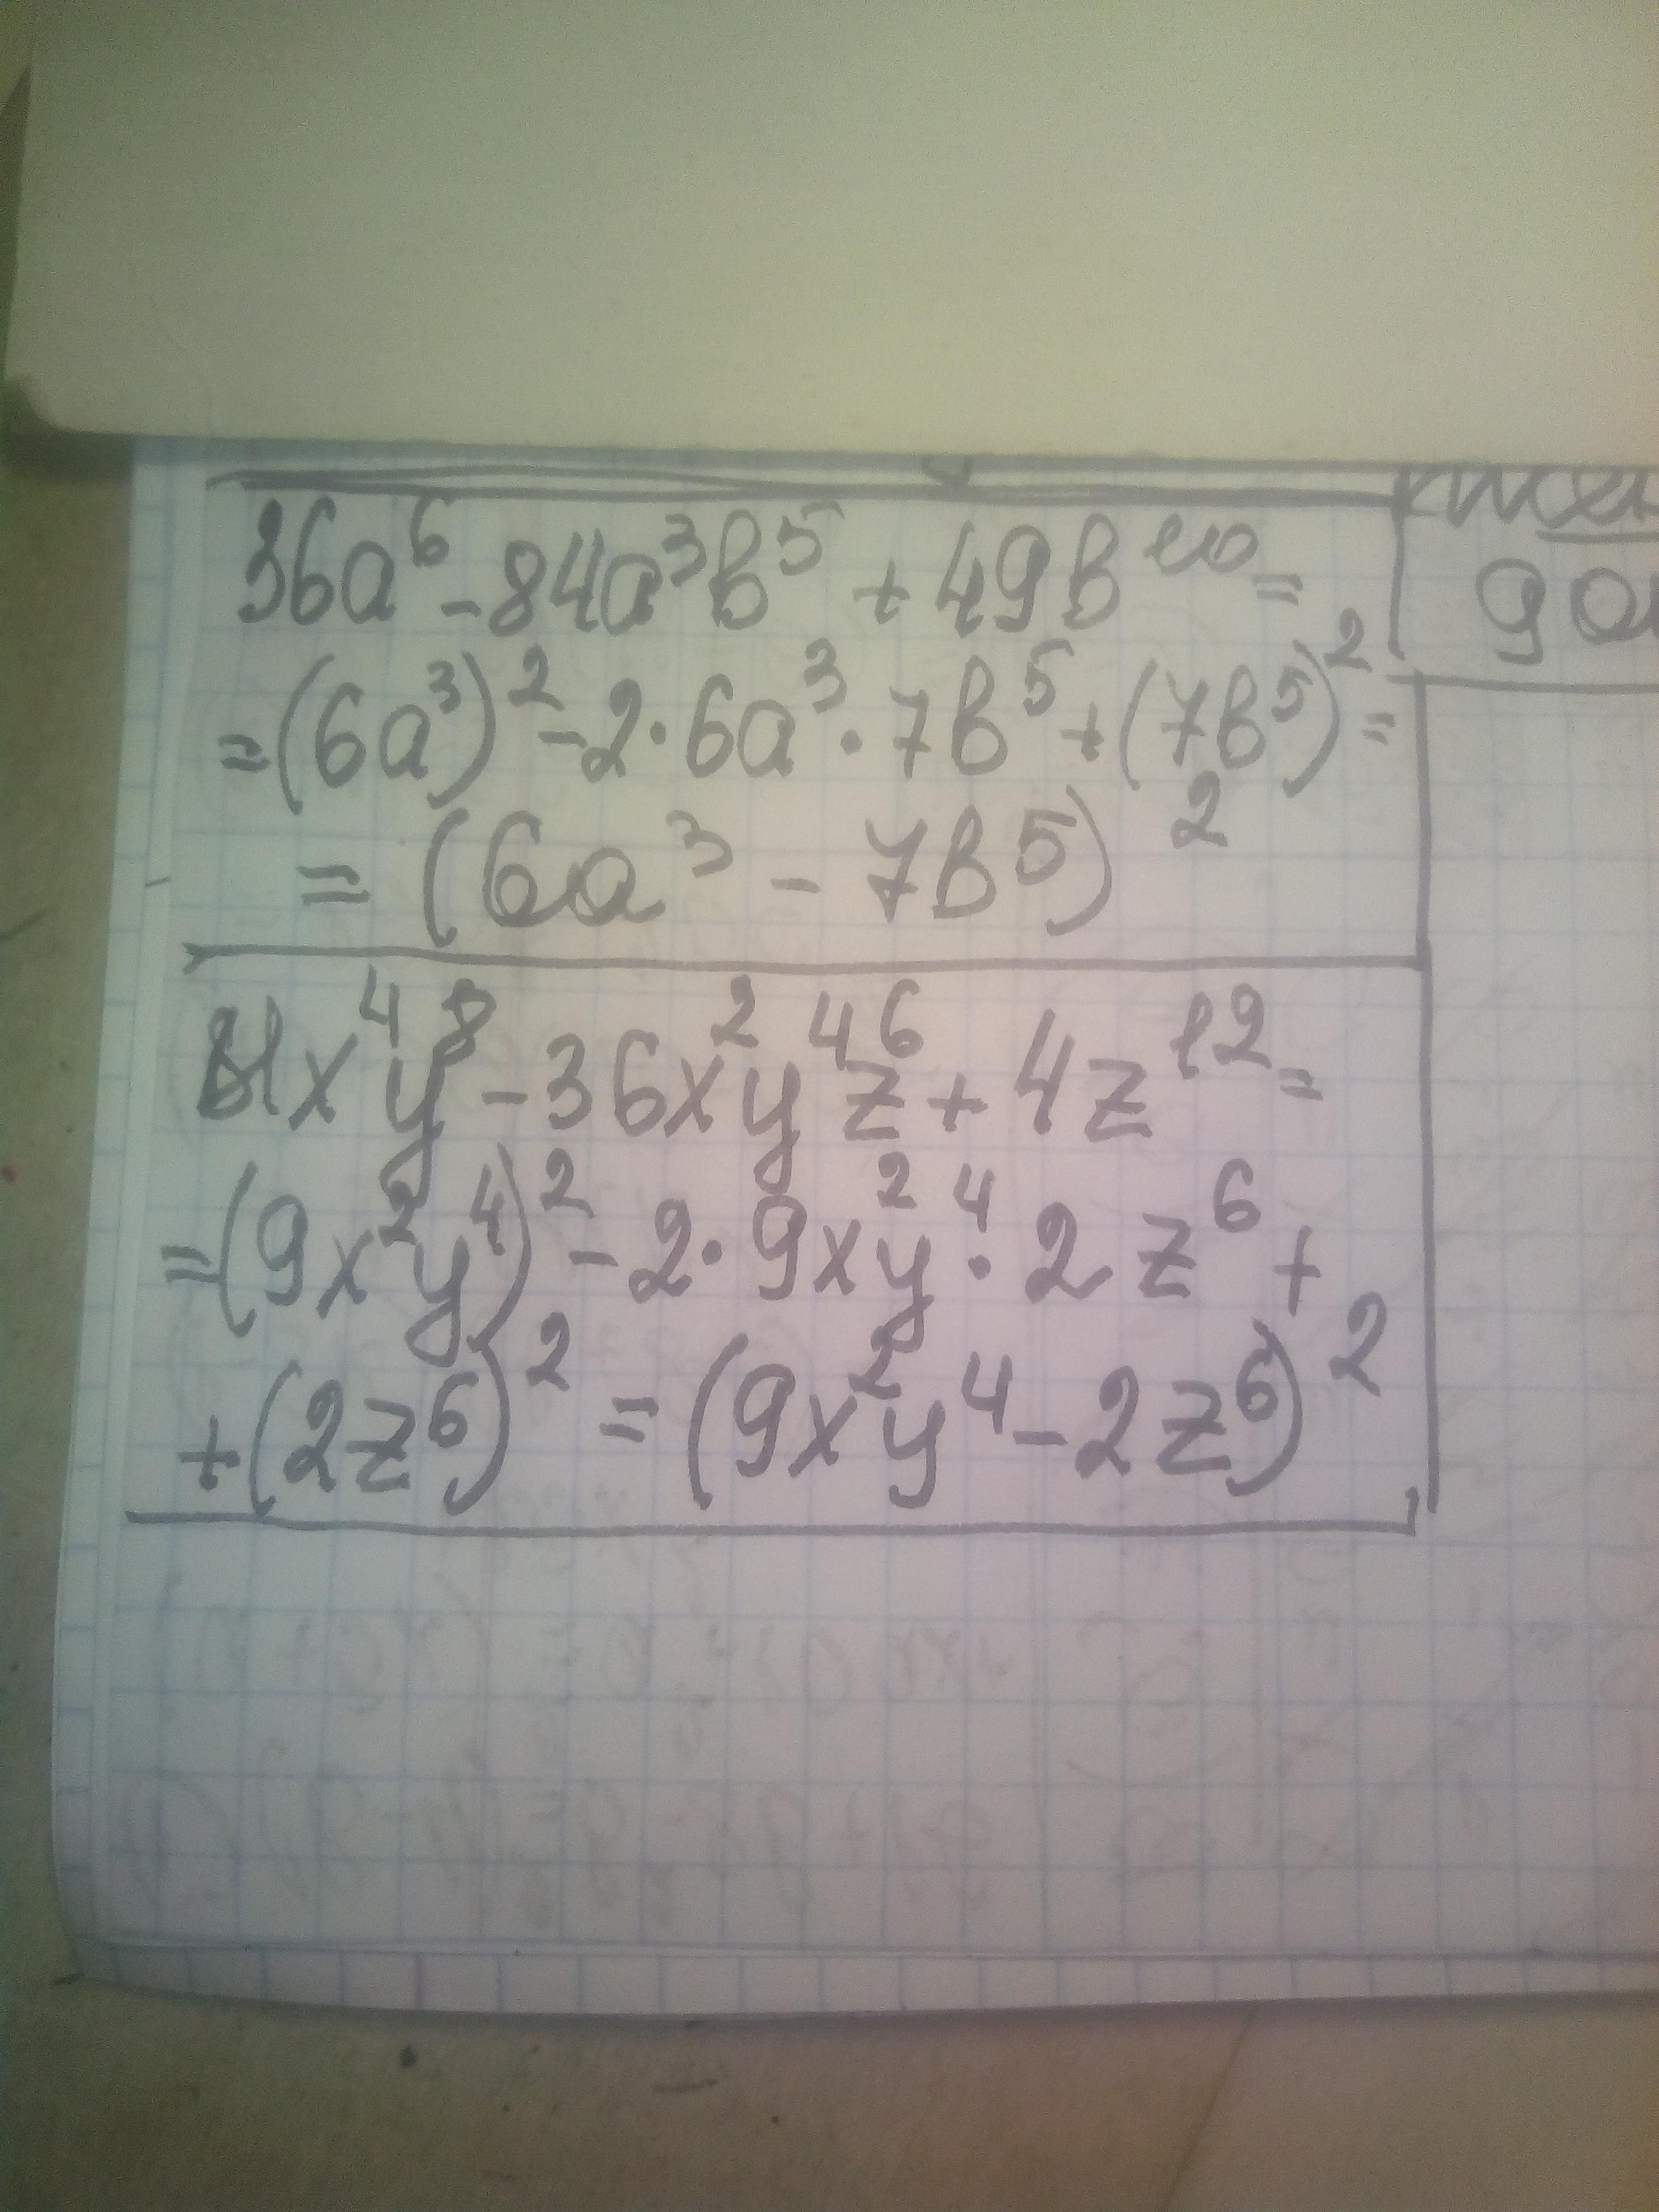 36a⁶ - 84a³b⁵ + 49b¹⁰ =
= (6a³)² - 2 · 6a³ · 7b⁵ + (7b⁵)² =
= (6a³ - 7b⁵)²
81x⁴y⁸ - 36x²y⁴z⁶ + 4z¹² =
= (9x²y⁴)² - 2 · 9x²y⁴ · 2z⁶ +
+ (2z⁶)² = (9x²y⁴ - 2z⁶)²